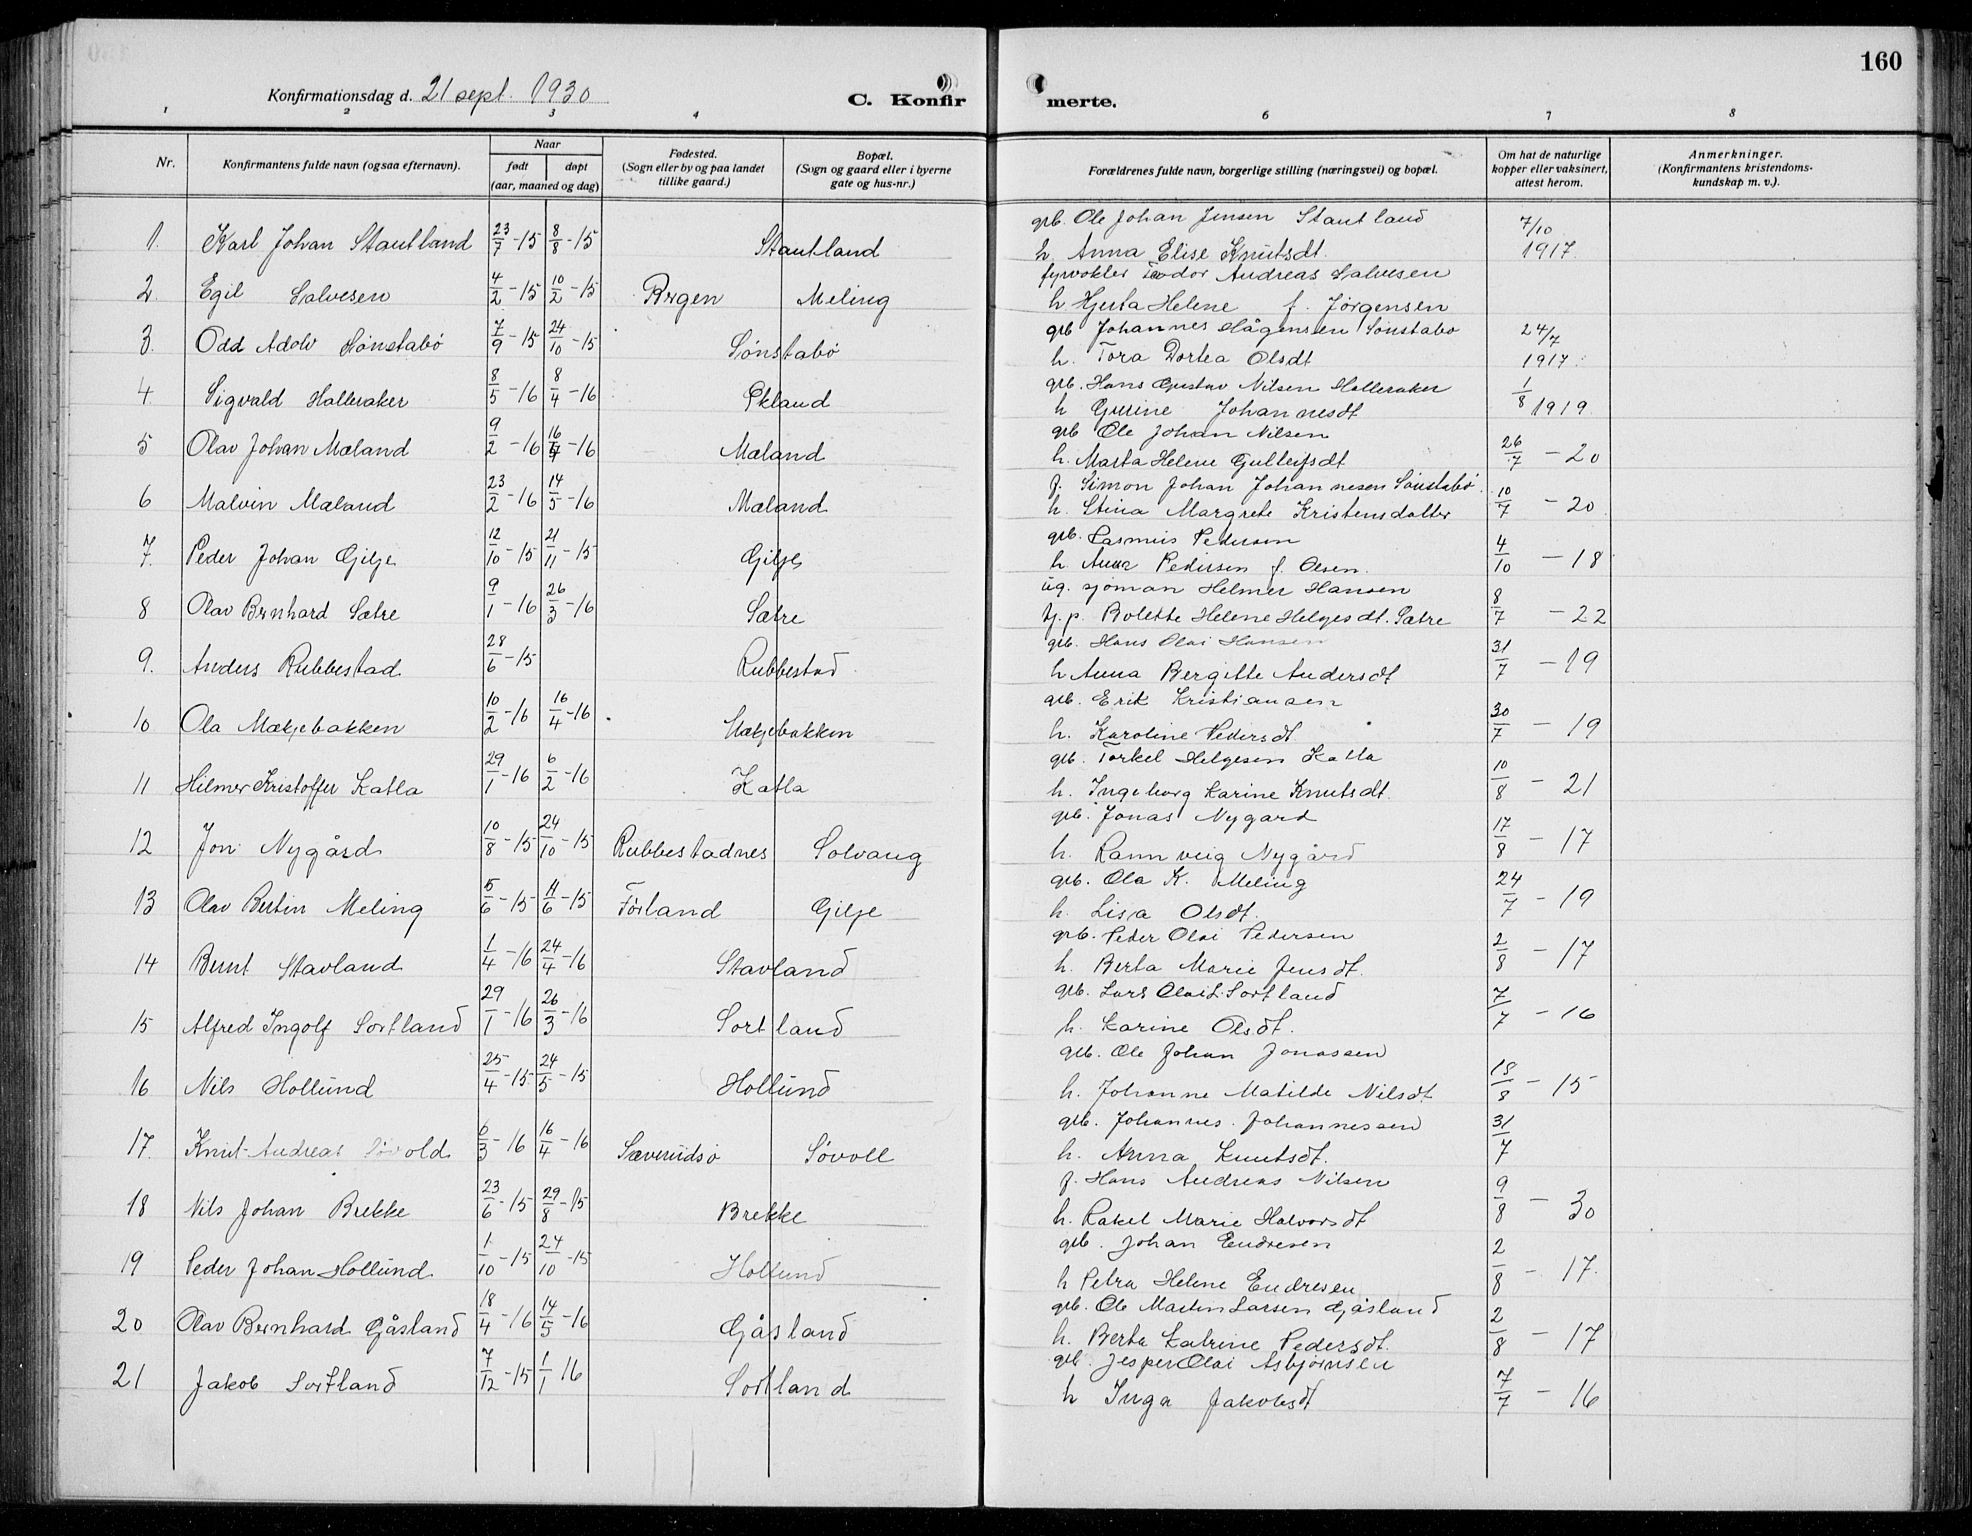 160
Konfirmationsdag d. 21 sept. 1930
C. Konfirmerte.
1 2 3 4 6 7 8
Nr. Konfirmantens fulde navn (ogsaa efternavn). Naar født døpt (aar, maaned og dag) Fødested. (Sogn eller by og paa landet tillike gaard.) Bopæl. (Sogn og gaard eller i byerne gate og hus-nr.) Forældrenes fulde navn, borgerlige stilling (næringsvei) og bopæl. Om hat de naturlige kopper eller vaksinert, attest herom. Anmerkninger. (Konfirmantens kristendomskundskap m. v.).
1. Karl Johan Stautland 23/7-15 8/8-15 Stautland grb. Ole Johan Jensen Stautland h. Anna Elise Knutsdt. 7/10 1917
2. Egil Salvesen 4/2-15 10/2-15 Brgen Meling fyrvokter Andreas Salvesen h Helene f. Jørgensen
3. Odd Adolv Sønstabø 7/9-15 24/10-15 Sønstabø grb Johannes Hågensen Sønstabø h. Tora Dortea Olsdt 24/7 1917.
4. Sigvald Halleraker 8/5-16 8/4-16 Ekland grb. Hans Gustav Nilsen Halleraker h Gurine Johannesdt 1/8 1919
5 Olav Johan Mæland 9/2-16 16/4-16 Mæland grb Ole Johan Nilsen h. Marta Helene Gulleifsdt 26/7-20
6 Malvin Mæland 23/2-16 14/5-16 Mæland f. Simon Johan Johannesen Sønstabø h. Stina Margrete Kristensdatter 10/7-20
7. Peder Johan Gilje 12/10-15 21/11-15 Gilje grb. Rasmus Pedersen h. Anna Pedersen f. Olsen. 4/10-18
8 Olav Bernhard Sætre 9/1-16 26/3-16 Sætre ug. sjøman Helmer Hansen tj.p. Bolette Helene Helgesdt. Sætre 8/7-22
9. Anders Rubbestad 28/6-15 Rubbestad grb. Hans Olai Hansen h Anna Bergitte Andersdt 31/7-19
10 Ola Mækjebakken 10/2-16 16/4-16 Mækjebakken grb. Erik Kristiansen h. Karoline Pedersdt 30/7-19
11 Hilmer Kristoffer Katla 29/1-16 6/2-16 Katla grb. Torkel Helgesen Katla h. Ingeborg Karine Knutsdt. 10/8-21
12 Jon Nygård 10/8-15 24/10-15 Rubbestadnes Solvang grb. Jonas Nygård h. Rannveig Nygård 17/8-17
13 Olav Bertin Meling 5/6-15 /6-15 Førland Gilje grb. Ola K. Meling h. Lisa Olsdt. 24/7-19
14 Bernt Stavland 1/4-16 24/4-16 Stavland grb. Peder Olai Pedersen h. Berta Marie Jensdt. 2/8-17
15 Alfred Ingolf Sortland 29/1-16 26/3-16 Sortland grb. Lars Olai L. Sortland h. Karine Olsdt. 7/7-16
16 Nils Hollund 25/4-15 24/5-15 Hollund grb. Ole Johan Jonassen h. Johanne Matilde Nilsdt /8-15
17. Knut Andreas Søvold 6/3-16 16/4-16 Søvoll grb. Johannes Johannessen h. Anna Knutsdt. 31/7
18 Nils Johan Brekke 23/6-15 29/8-15 Brekke f. Hans Andreas Nilsen h. Rakel Marie Halvorsdt 9/8-30
19 Peder Johan Hollund 1/10-15 24/10-15 Hollund grb. Johan Endresen h Petra Helene Endresen 2/8-17.
20 Olav Bernhard Gåsland 18/4-16 14/5-16 Gåsland grb. Ole Martin Larsen Gåsland h. Berta Katrine Pedersdt. 2/8-17
21 Jakob Sortland 7/12-15 1/1 16 Sortland grb. Jesper Olai Asbjørnsen h Inga Jakobsdt 7/7-16